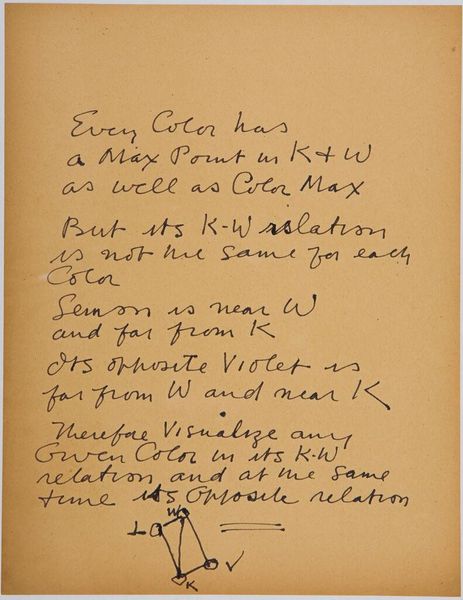 Every Color has
a Max Point in K + W
as well as Color Max
But its K-W relation
is not the same for each
Color
Lemon is near W
and far from K
Its opposite Violet is
far from W and near K
Therefore Visualize any
Given Color in its K-W
relation and at the same
time its opposite relation
W
L
V
K